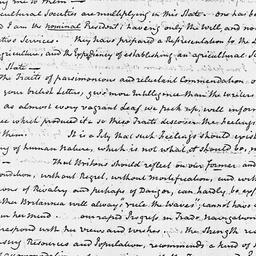 ing me to them —
cultural Societies are multiplying in this State — One has be
nd I am the nominal President; having only the Will, and no
tive Services. They have prepared a Representation to the L
Agriculture, and the Expediency of establishing an agricultural S
State —
The Traits of parsimonious and reluctant Commendation, o
your British Letters, give more Intelligence than the writers
as almost every vagrant Leaf we pick up, will inform
ree which produced it, so these Traits discover the Feelings
them. It is a Pity that such Feelings should exist
ry of human Nature, which is not what it should be,
— That Britons should reflect on our former and
ondition, without Regret, without mortification, and with
ions of Rivalry and perhaps of Danger, can hardly be exp
ther Britannia will always "rule the Waves," cannot have
in her mind — our rapid Progress in Trade, Navigation
respond with her views and wishes — the Strength re
sing Resources and Population, recommends a kind of